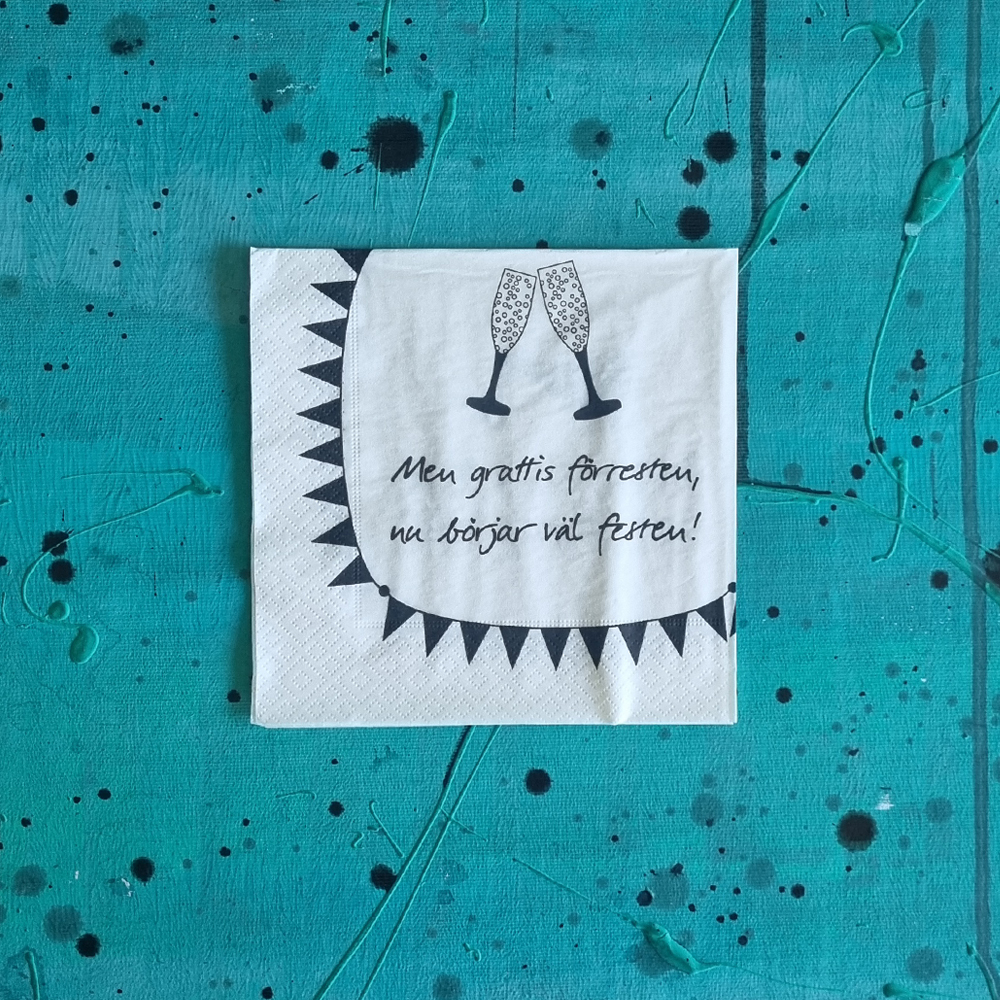 Men grattis förresten,
nu börjar väl festen!